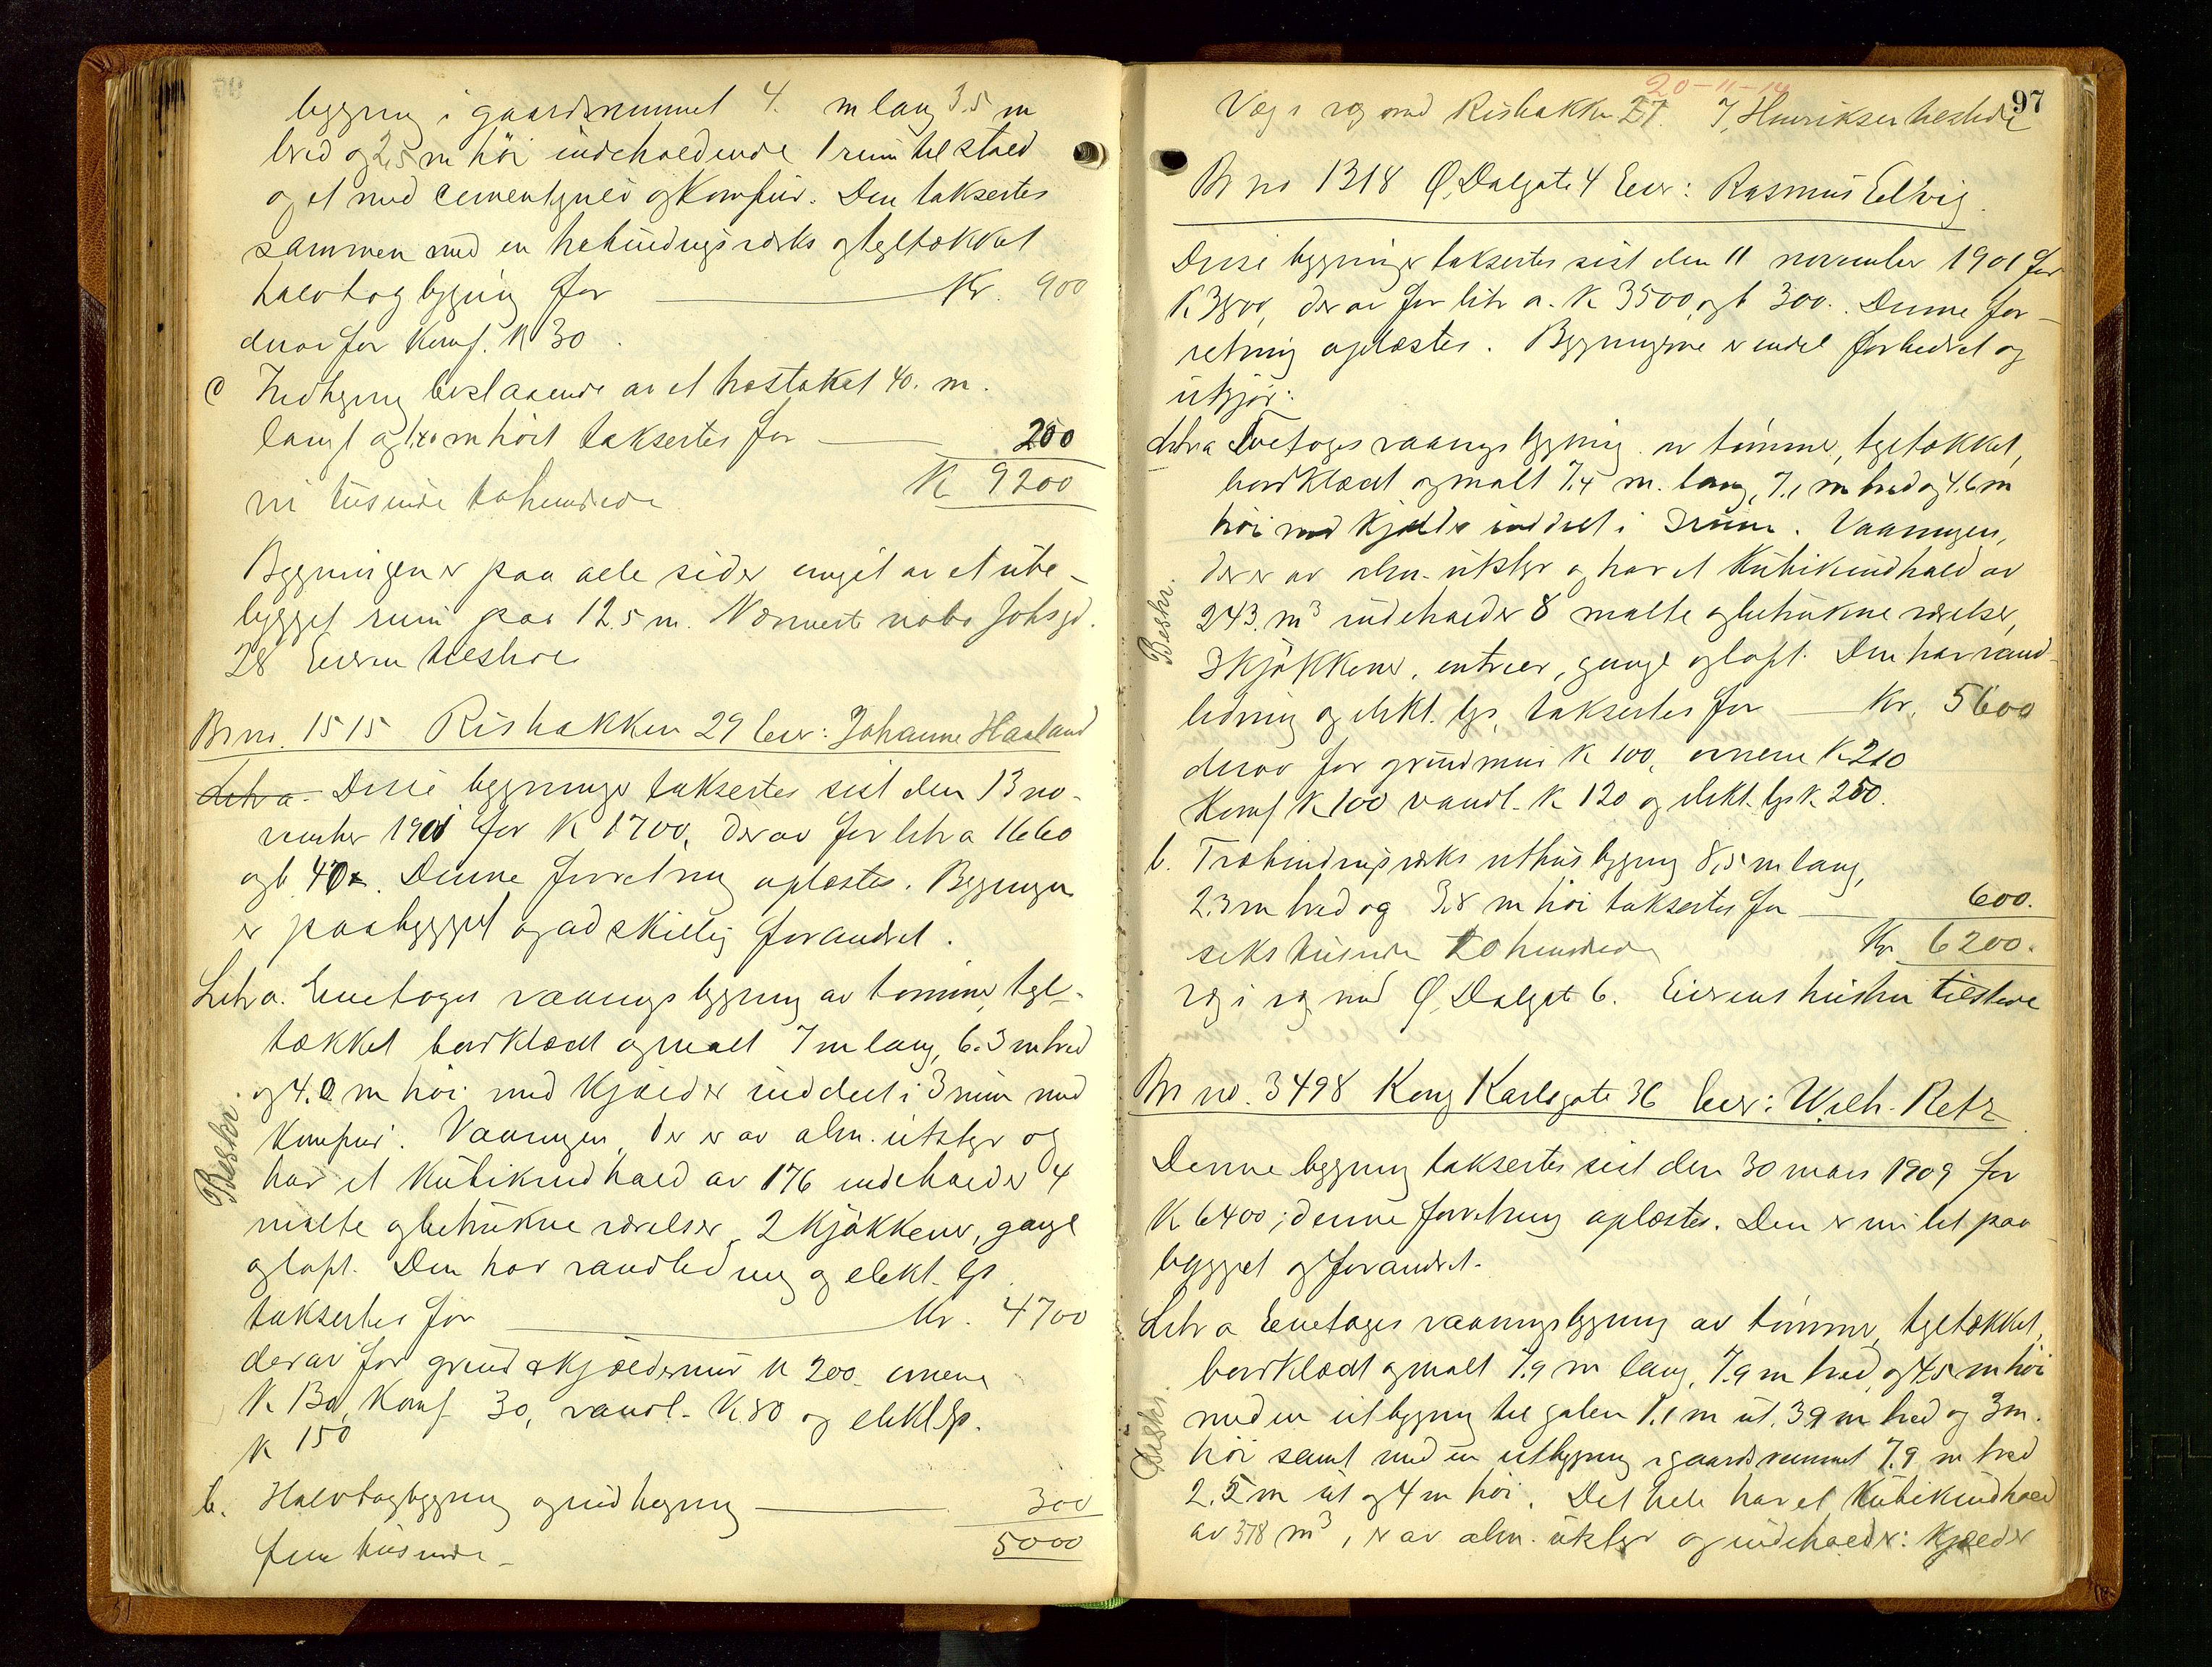 bygning i gaardsrummet 4. m lang 3.5 m
bred og 2,5 m höi indeholdende 1 rum til stald
og et med cementgulv og Komfur. Den taksertes
sammen med en trebindingsverks og teltækket
halvtag bygning for Kr. 900
derav for Komf. K 30.
c Indhegning bestaaende av et træstaket 40. m.
langt og m höit taksertes for 200
ni tusinde tohundrede K 9200
Bygningen er paa alle sider omgit av et ube-
bygget rum paa 12.5 m. Nærmeste nabo Johsgd.
28 Eieren tilstede
Br no. 1515 Risbakken 29 Eier: Johanne Haaland
Litra a. Disse bygninger taksertes sist den 13 no-
vember 1901 for K 1700, derav for litr a 1660
og b 40. Denne forretning oplæstes. Bygningen
er paabygget og adskillig forandret.
Litr a. Enetages vaaningsbygning av tömmer, tegl-
tækket bordklædt og malt 7 m lang, 6.3 m bred
og 4.0 m höi med Kjælder inddelt i 3 rum med
Komfur. Vaaningen, der er av alm. utstyr og
har et Kubikindhold av 176 indeholder 4
malte og betrukne værelser, 2 Kjökkener, gange
og loft. Den har vandledning og elekt. lys
taksertes for Kr. 4700
derav for grund & Kjældermur K 200. ovnene
K 130, Komf. 30, vandl. K 80 og elekt lys.
K 150
b. Halvtagbygning og indhegning 300
fem tusinde 5000
Beskr.
20-11-14
97
Væg i væg med Risbakken 27. J. Henriksen tilstede
Br no 1318 Ø. Dalgate 4 Eier: Rasmus Eelvig.
Disse bygninger taksertes sist den 11 november 1901 for
K 3800, derav for litr a. K 3500, og b 300. Denne for-
retning oplæstes. Bygningerne er endel forbedret og
utgjör:
Litr a Toetages vaaningsbygning av tömmer, tegltækket,
bordklædt og malt 7.4 m. lang, 7.1 m bred og 4.6 m
höi med Kjælder inddelt i 3 rum. Vaaningen,
der er av alm. utstyr og har et Kubikindhold av
243. m³ indeholder 8 malte og betrukne værelser,
3 Kjökkener, entreer, gange og loft. Den har vand-
ledning og elekt. lys, taksertes for Kr. 5600
derav for grundmur K 100, ovnene K 210
Komf K 100 vandl. K 120 og elekt. lys K 250.
b. Træbindingsverks uthusbygning 8,5 m lang,
2.3 m bred og 3.8 m höi taksertes for 600.
seks tusinde to hundrede Kr 6200.
Væg i væg med Ø. Dalgate 6. Eierens hustru tilstede
Br no. 3498 Kong Karlsgate 36 Eier: Wilh. Retz
Denne bygning taksertes sist den 30 mars 1909 for
K 6400; denne forretning oplæstes. Den er nu litt paa
bygget og forandret.
Litr a Enetages vaaningsbygning av tömmer, tegltækket,
bordklædt og malt 7.9 m lang, 7.9 m bred, og 4.5 m höi
med en utbygning til gaten 1.1 m ut, 3.9 m bred og 3 m.
höi samt med en utbygning i gaardsrummet 7.9 m bred
2.5 m ut og 4 m höi. Det hele har et Kubikindhold
av 378 m³, er av alm. utstyr og indeholder: Kjælder
Beskr.
Beskr.